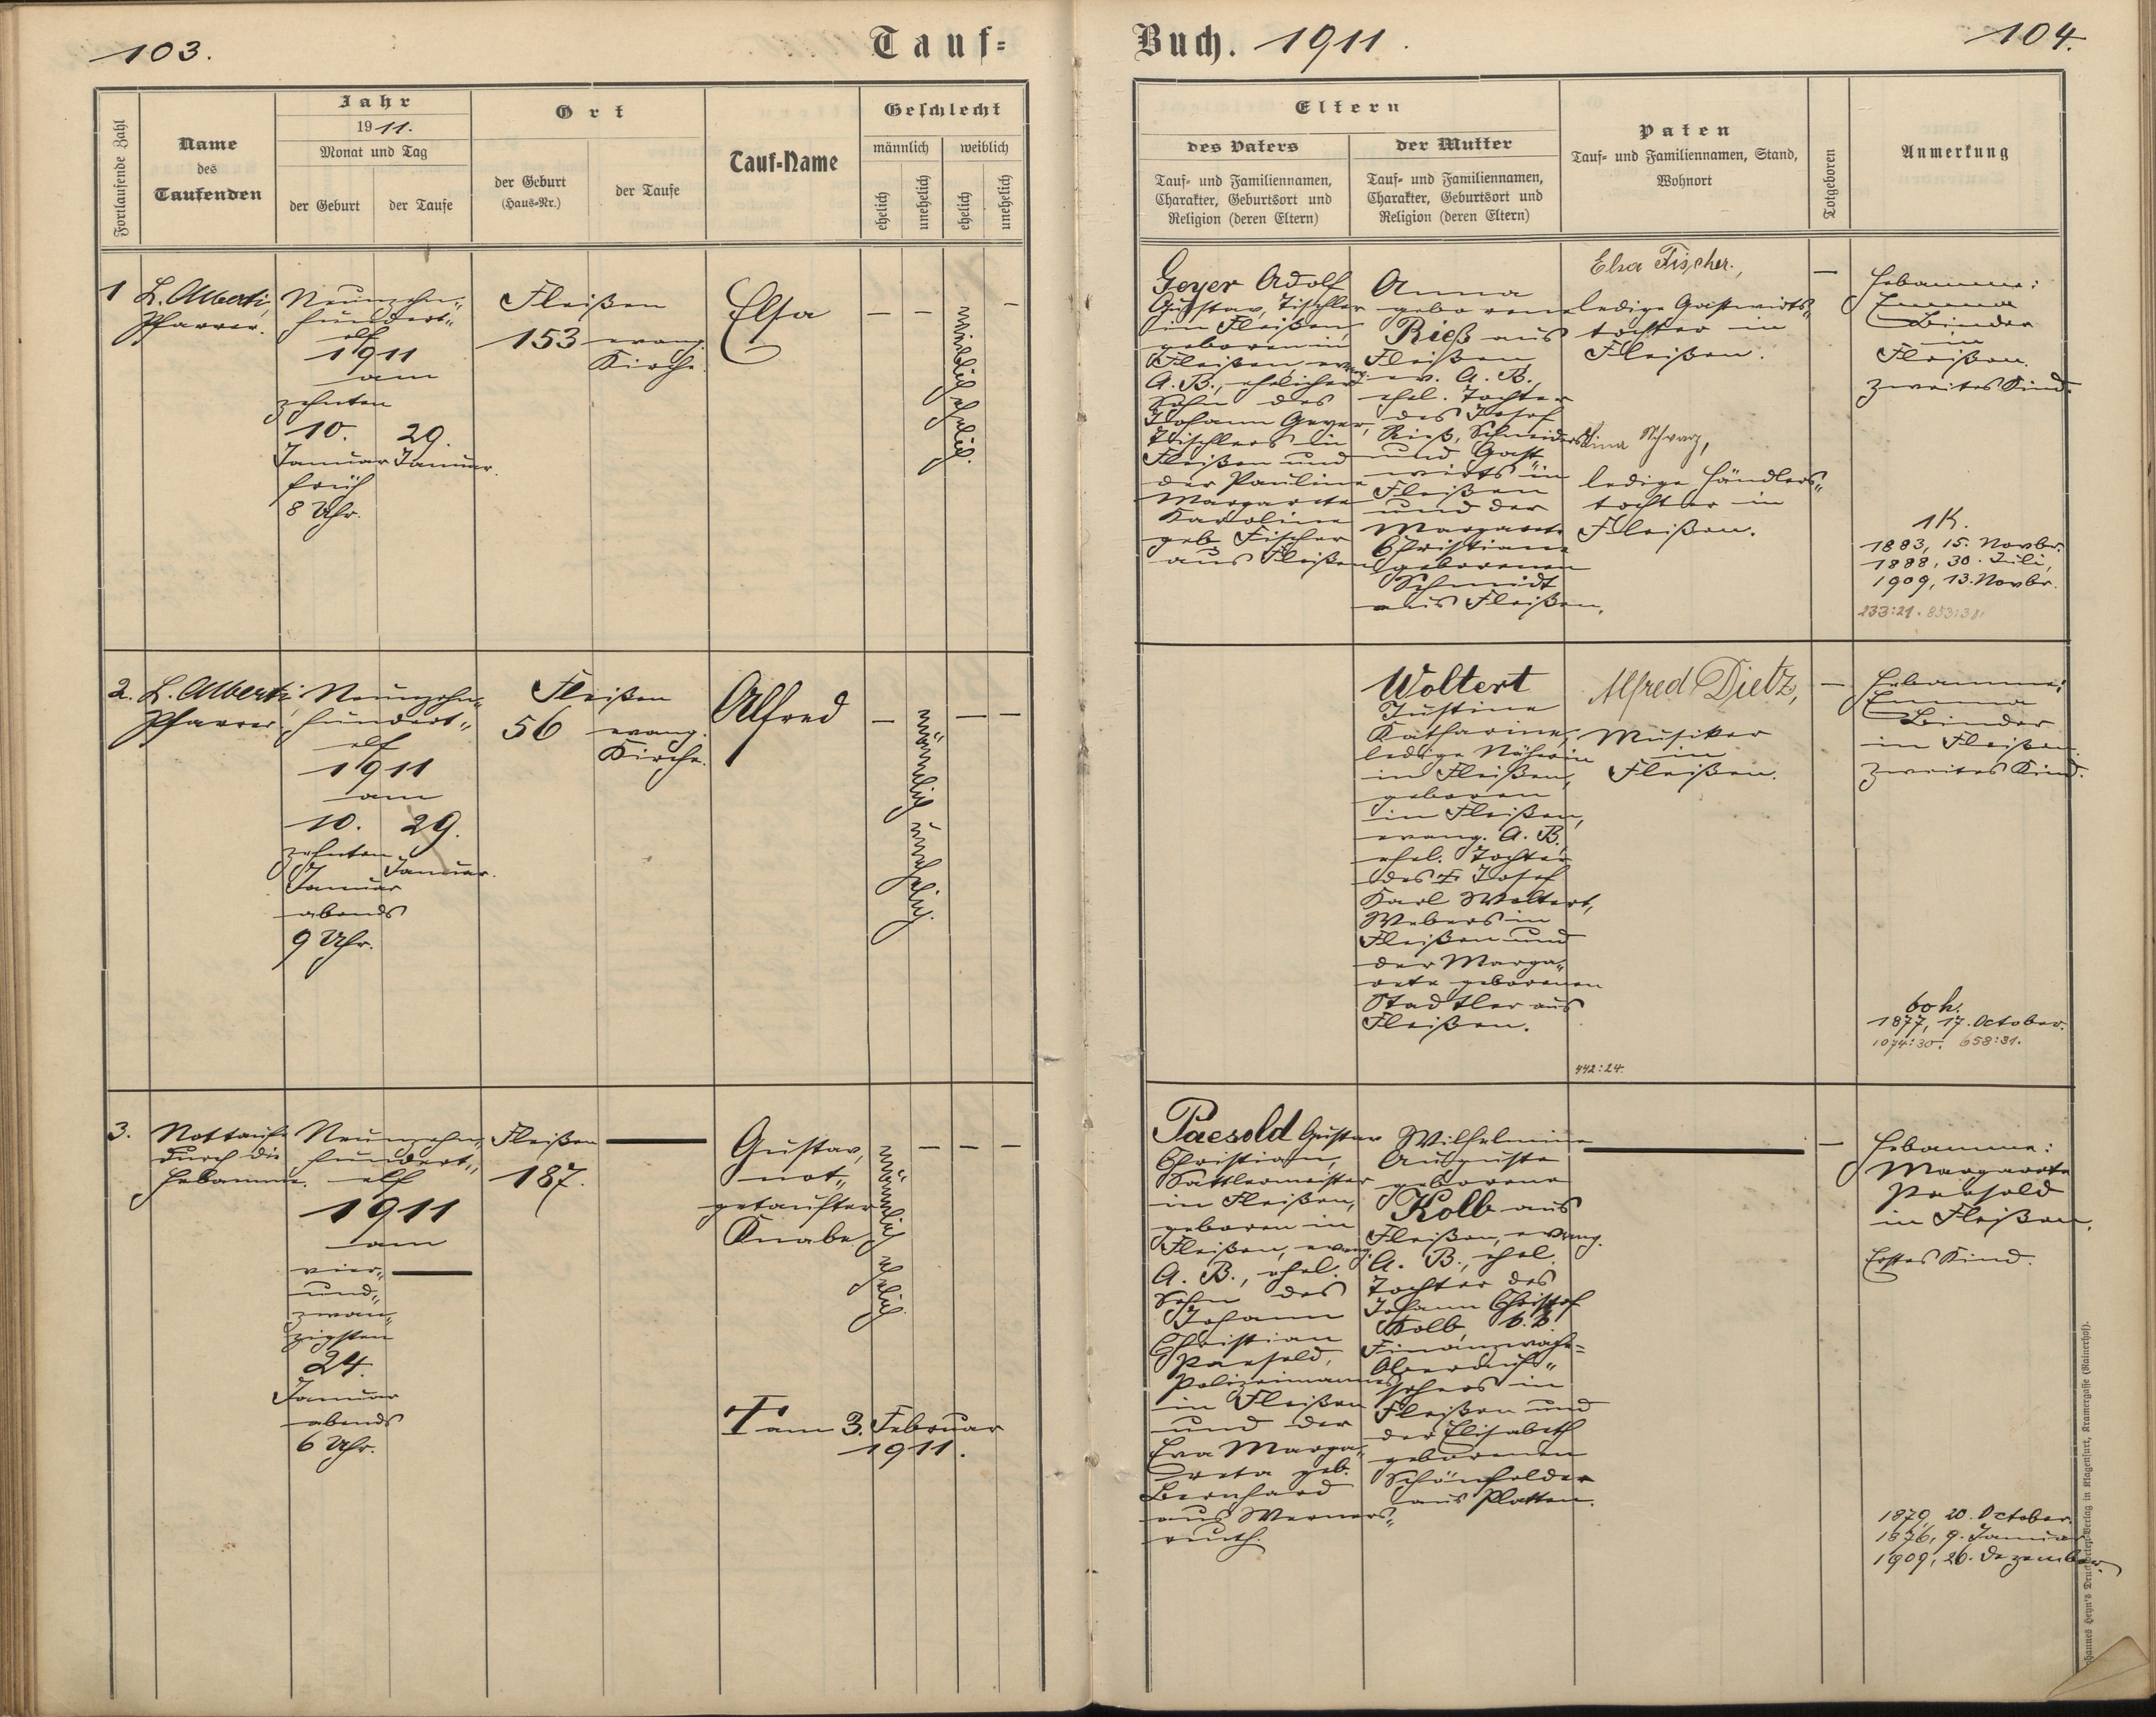 103.
Tauf-
Fortlaufende Zahl
Name
des
Taufenden
Jahr
1911.
Monat und Tag
der Geburt
der Taufe
Ort
der Geburt
(Haus-Nr.)
der Taufe
Tauf-Name
Geschlecht
männlich
weiblich
ehelich
unehelich
ehelich
unehelich
1
L. Alberti,
Pfarrer.
Neunzehn-
hundert-
elf
1911
am
zehnten
10.
Januar
früh
8 Uhr.
29.
Januar.
Fleißen
153
evang.
Kirche.
Elsa
—
—
weiblich ehelich.
—
2.
L. Alberti,
Pfarrer.
Neunzehn-
hundert-
elf
1911
am
10.
zehnten
Januar
abends
9 Uhr.
29.
Januar.
Fleißen
56
evang.
Kirche.
Alfred
—
männlich unehelich.
—
—
3.
Nottaufe
durch die
Hebamme.
Neunzehn-
hundert-
elf
1911
am
vier-
und-
zwan-
zigsten
24.
Januar
abends
6 Uhr.
Fleißen
187.
Gustav,
not-
getaufter
Knabe.
männlich ehelich.
—
—
—
† am 3. Februar
1911.
Buch. 1911.
104.
Eltern
des Vaters
Tauf- und Familiennamen,
Charakter, Geburtsort und
Religion (deren Eltern)
der Mutter
Tauf- und Familiennamen,
Charakter, Geburtsort und
Religion (deren Eltern)
Paten
Tauf- und Familiennamen, Stand,
Wohnort
Totgeboren
Anmerkung
Geyer Adolf
Gustav, Tischler
in Fleißen,
geboren in
Fleißen, evang.
A. B., ehelicher
Sohn des
Johann Geyer,
Tischlers in
Fleißen und
der Pauline
Margarete
Karoline
geb. Fischer
aus Fleißen
Anna
geborene
Rieß aus
Fleißen
ev. A. B.,
ehel. Tochter
des Josef
Rieß, Schneiders
und Gast
wirts in
Fleißen
und der
Margarete
Christiane
geborenen
Schmidt
aus Fleißen.
Elsa Fischer,
ledige Gastwirts-
tochter in
Fleißen.
Lina Schwarz,
ledige Händlers-
tochter in
Fleißen.
—
Hebamme:
Emma
Binder
in
Fleißen.
Zweites Kind.
1K.
1883, 15. Novbr.
1888, 30. Juli,
1909, 13. Novbr.
233:21. 853:38.
Woltert
Justine
Katharine,
ledige Näherin
in Fleißen,
geboren
in Fleißen,
evang. A. B.,
ehel. Tochter
des † Josef
Karl Woltert,
Webers in
Fleißen und
der Marga-
rete geborenen
Stadtler aus
Fleißen.
Alfred Dietz,
Musiker
in
Fleißen.
442:24.
—
Hebamme:
Emma
Binder
in Fleißen.
Zweites Kind.
60 h.
1877, 17. October.
1074:30. 658:31.
Paesold Gustav
Christian,
Sattlermeister
in Fleißen,
geboren in
Fleißen, evang.
A. B., ehel.
Sohn des
Johann
Christian
Paesold,
Polizeimannes
in Fleißen
und der
Eva Marga-
reta geb.
Bernhard
aus Werners-
reuth.
Wilhelmine
Auguste
geborene
Kolb aus
Fleißen, evang.
A. B., ehel.
Tochter des
Johann Christof
Kolb, k. k.
Finanzwach-
Oberauf-
sehers in
Fleißen und
der Elisabeth
geborenen
Schönfelder
aus Platten.
—
Hebamme:
Margarete
Paesold
in Fleißen.
Erstes Kind.
1879, 20. October.
1876, 9. Januar
1909, 26. Dezember.
Johannes Heyn's Druckerei-Verlag in Klagenfurt, Kramergasse (Rainerhof).